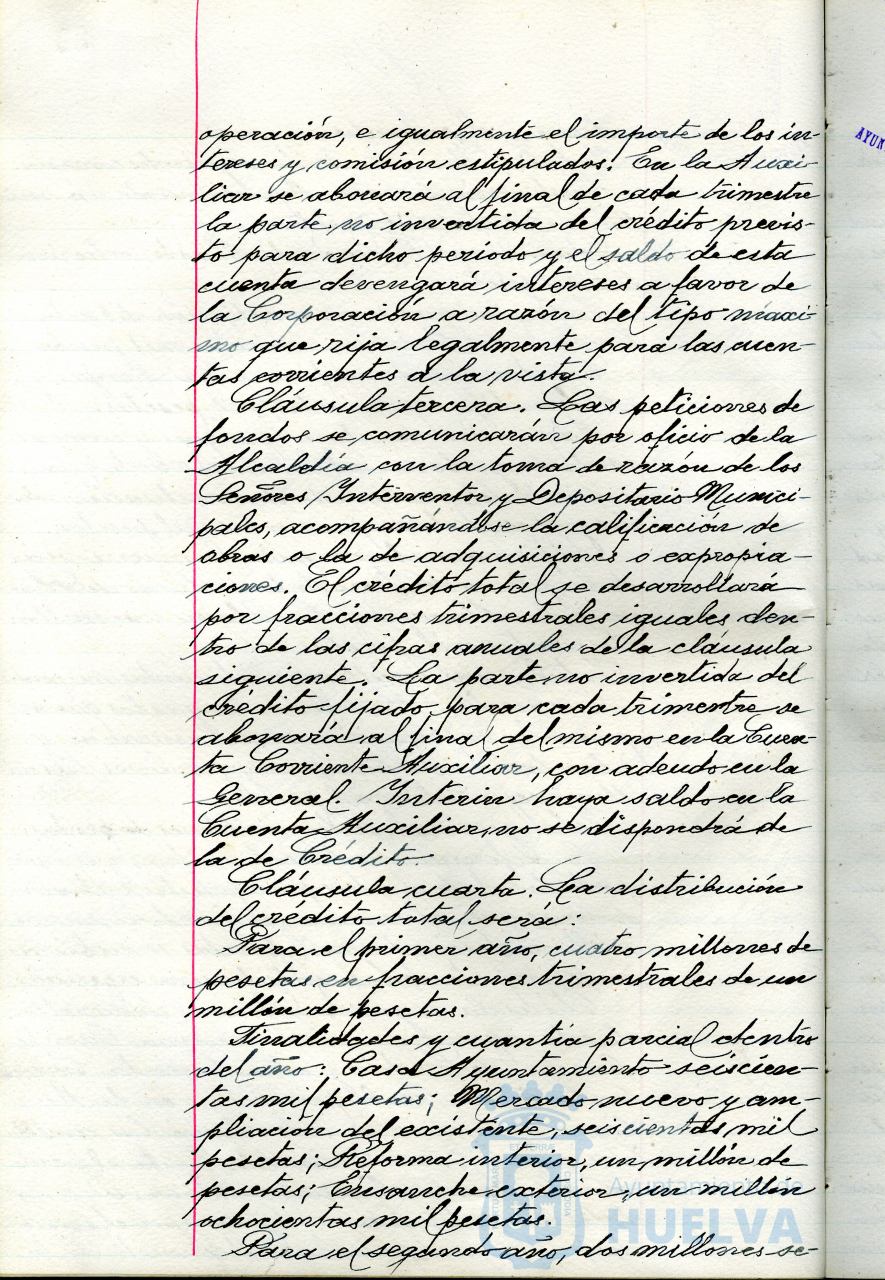 operación, e igualmente el importe de los in-
tereses y comisión estipulados. En la Auxi-
liar se abonará al final de cada trimestre
la parte no invertida del crédito previs-
to para dicho período y el saldo de esta
cuenta devengará intereses a favor de
la Corporación a razón del tipo máxi-
mo que rija legalmente para las cuen-
tas corrientes a la vista.
Cláusula tercera. Las peticiones de
fondos se comunicarán por oficio de la
Alcaldía con la toma de razón de los
Señores Interventor y Depositario Munici-
pales, acompañándose la calificación de
obras o la de adquisiciones o expropia-
ciones. El crédito total se desarrollará
por fracciones trimestrales iguales den-
tro de las cifras anuales de la cláusula
siguiente. La parte no invertida del
crédito fijado para cada trimentre se
abonará al final del mismo en la Cuen-
ta Corriente Auxiliar, con adeudo en la
General. Interin haya saldo en la
Cuenta Auxiliar, no se dispondrá de
la de Crédito.
Cláusula cuarta. La distribución
del crédito total será:
Para el primer año, cuatro millones de
pesetas en fracciones trimestrales de un
millón de pesetas.
Finalidades y cuantía parcial dentro
del año: Casa Ayuntamiento seiscien-
tas mil pesetas; Mercado nuevo y am-
pliación del existente, seiscientas mil
pesetas; Reforma interior, un millón de
pesetas; Ensanche exterior, un millón
ochocientas mil pesetas.
Para el segundo año, dos millones se-
AYUN
Ayuntamiento de
HUELVA